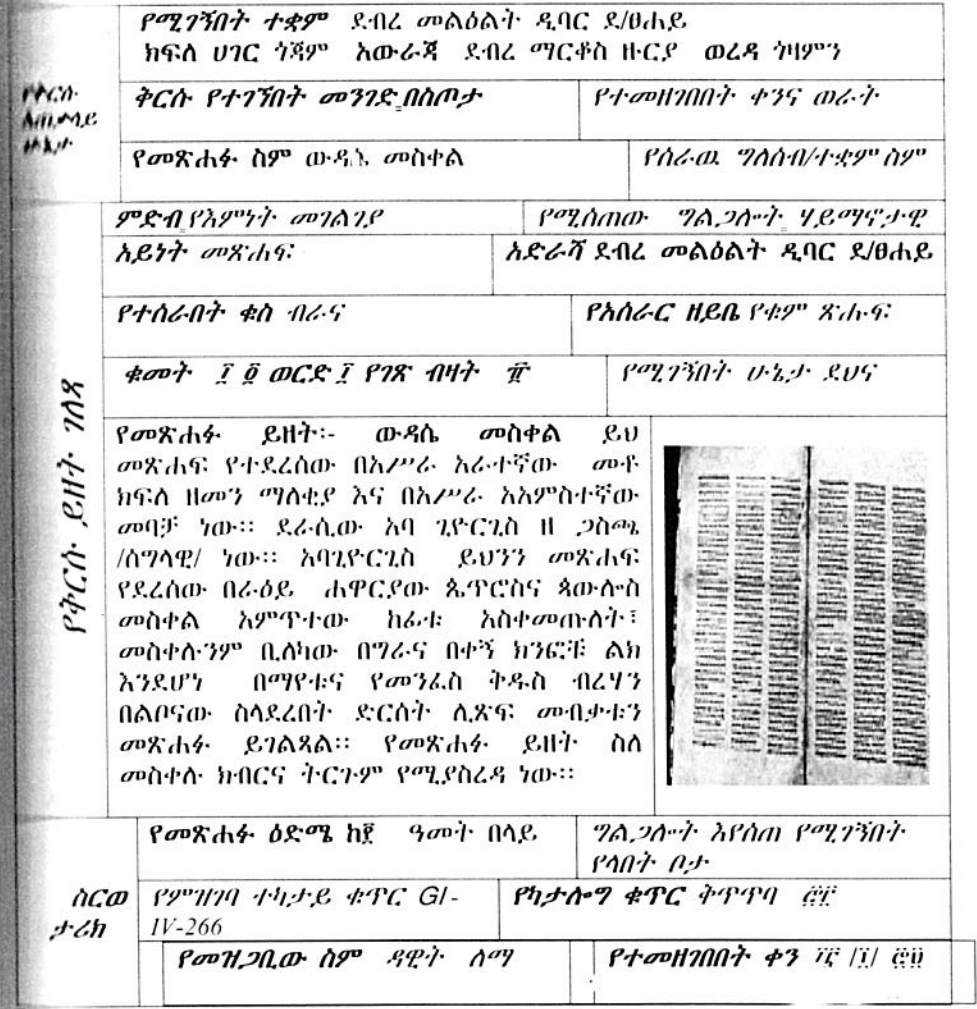 የሚገኝበት ተቋም ደብረ መልዕልት ዲባር ደ/ፀሐይ
ክፍለ ሀገር ጎጃም አውራጃ ደብረ ማርቆስ ዙርያ ወረዳ ጎዛምን
የቅርሱ
አጠቃላይ
ሁኔታ
ቅርሱ የተገኘበት መንገድ በስጦታ
የተመዘገበበት ቀንና ወራት
የመጽሐፉ ስም ውዳሴ መስቀል
የሰራዉ ግለሰብ/ተቋም ስም
ምድብ የእምነት መገልገያ
የሚሰጠው ግልጋሎት ሃይማኖታዊ
አይነት መጽሐፍ
አድራሻ ደብረ መልዕልት ዲባር ደ/ፀሐይ
የተሰራበት ቁስ ብራና
የአሰራር ዘይቤ የቁም ጽሑፍ
ቁመት ፲ ፬ ወርድ ፲ የገጽ ብዛት
የሚገኝበት ሁኔታ ደህና
የቅርሱ ይዘት ገለጻ
የመጽሐፉ ይዘት፡- ውዳሴ መስቀል ይህ
መጽሐፍ የተደረሰው በአሥራ አራተኛው መቶ
ክፍለ ዘመን ማለቂያ እና በአሥራ አአምስተኛው
መባቻ ነው፡፡ ደራሲው አባ ጊዮርጊስ ዘ ጋስጫ
/ሰግላዊ/ ነው፡፡ አባጊዮርጊስ ይህንን መጽሐፍ
የደረሰው በራዕይ ሐዋርያው ጴጥሮስና ጳውሎስ
መስቀል አምጥተው ከፊቱ አስቀመጡለት፣
መስቀሉንም ቢለካው በግራና በቀኝ ክንፎቹ ልክ
እንደሆነ በማየቱና የመንፈስ ቅዱስ ብረሃን
በልቦናው ስላደረበት ድርሰት ሊጽፍ መብቃቱን
መጽሐፉ ይገልጻል፡፡ የመጽሐፉ ይዘት ስለ
መስቀሉ ክብርና ትርጉም የሚያስረዳ ነው፡፡
የመጽሐፉ ዕድሜ ዓመት በላይ
ግልጋሎት እየሰጠ የሚገኝበት
የላበት ቦታ
ስርወ
ታሪክ
የምዝገባ ተከታይ ቁጥር GI-
IV-266
የካታሎግ ቁጥር ቅጥጥባ
የመዝጋቢው ስም ዳዊት ለማ
የተመዘገበበት ቀን